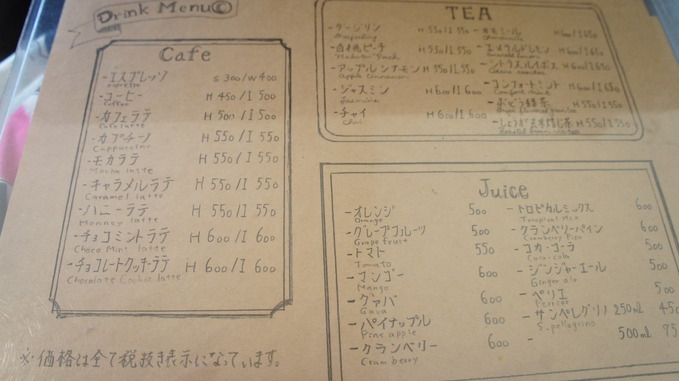 Drink Menu
Cafe
-エスプレッソ S 300/W 400
espresso
-コーヒー H 450/I 500
Coffee
-カフェラテ H 500/I 500
Cafe latte
-カプチーノ H 550/I 550
Cappuccino
-モカラテ H 550/I 550
Mocha latte
-キャラメルラテ H 550/I 550
Caramel latte
-ハニーラテ H 550/I 550
Honney latte
-チョコミントラテ H 600/I 600
Choco Mint latte
-チョコレートクッキーラテ H 600/I 600
Chocolate Cookie latte
※価格は全て税抜き表示になっています。
TEA
-ダージリン H 550/I 550
-白桃ピーチ H 550/I 550
-アップルシナモン H 550/I 550
Apple cinnamon
-ジャスミン H 600/I 600
Jasmine
-チャイ H 600/I 600
Chai
-カモミール H 600/I 650
-コンフォートミント
-ぶどう緑茶 H 550/I 550
H 550/I 550
Juice
-オレンジ 500
Orange
-グレープフルーツ 500
Grape fruit
-トマト 550
Tomato
-マンゴー 600
Mango
-グァバ 600
Gava
-パイナップル 600
Pine apple
-クランベリー 600
Cramberry
-トロピカルミックス 600
Tropical Mix
-クランベリーパイン 600
-コカ・コーラ 500
Coca-cola
-ジンジャーエール 500
Ginger ale
-ペリエ 500
Perrier
-サンペレグリノ 250ml 450
S.pellegrino
- 500ml 95